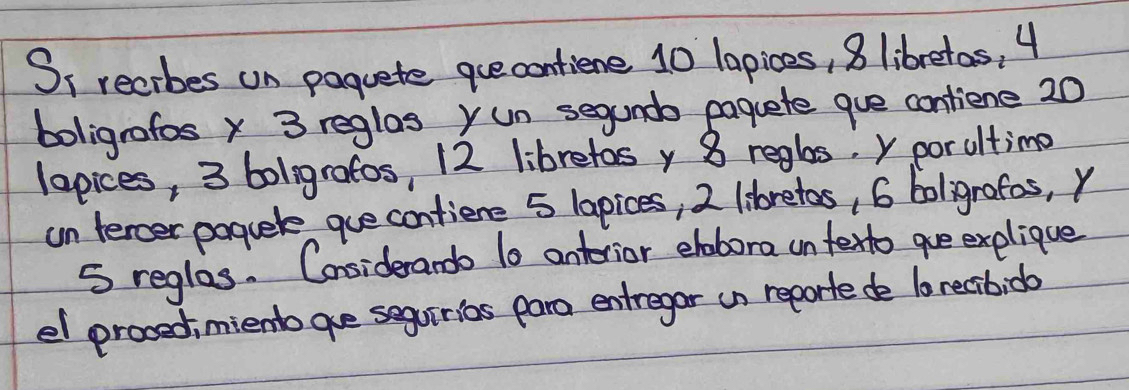 Si recibes un paquete que contiene 10 lapices, 8 libretas, 4
boligrafos y 3 reglas y un segundo paquete que contiene 20
lapices, 3 boligrafos, 12 libretas y 8 reglas. y por ultimo
un tercer paquete que contiene 5 lapices, 2 libretas, 6 boligrafos, y
5 reglas. Considerando lo anterior elabora un texto que explique
el procedimiento que seguirias para entregar un reporte de lo recibido